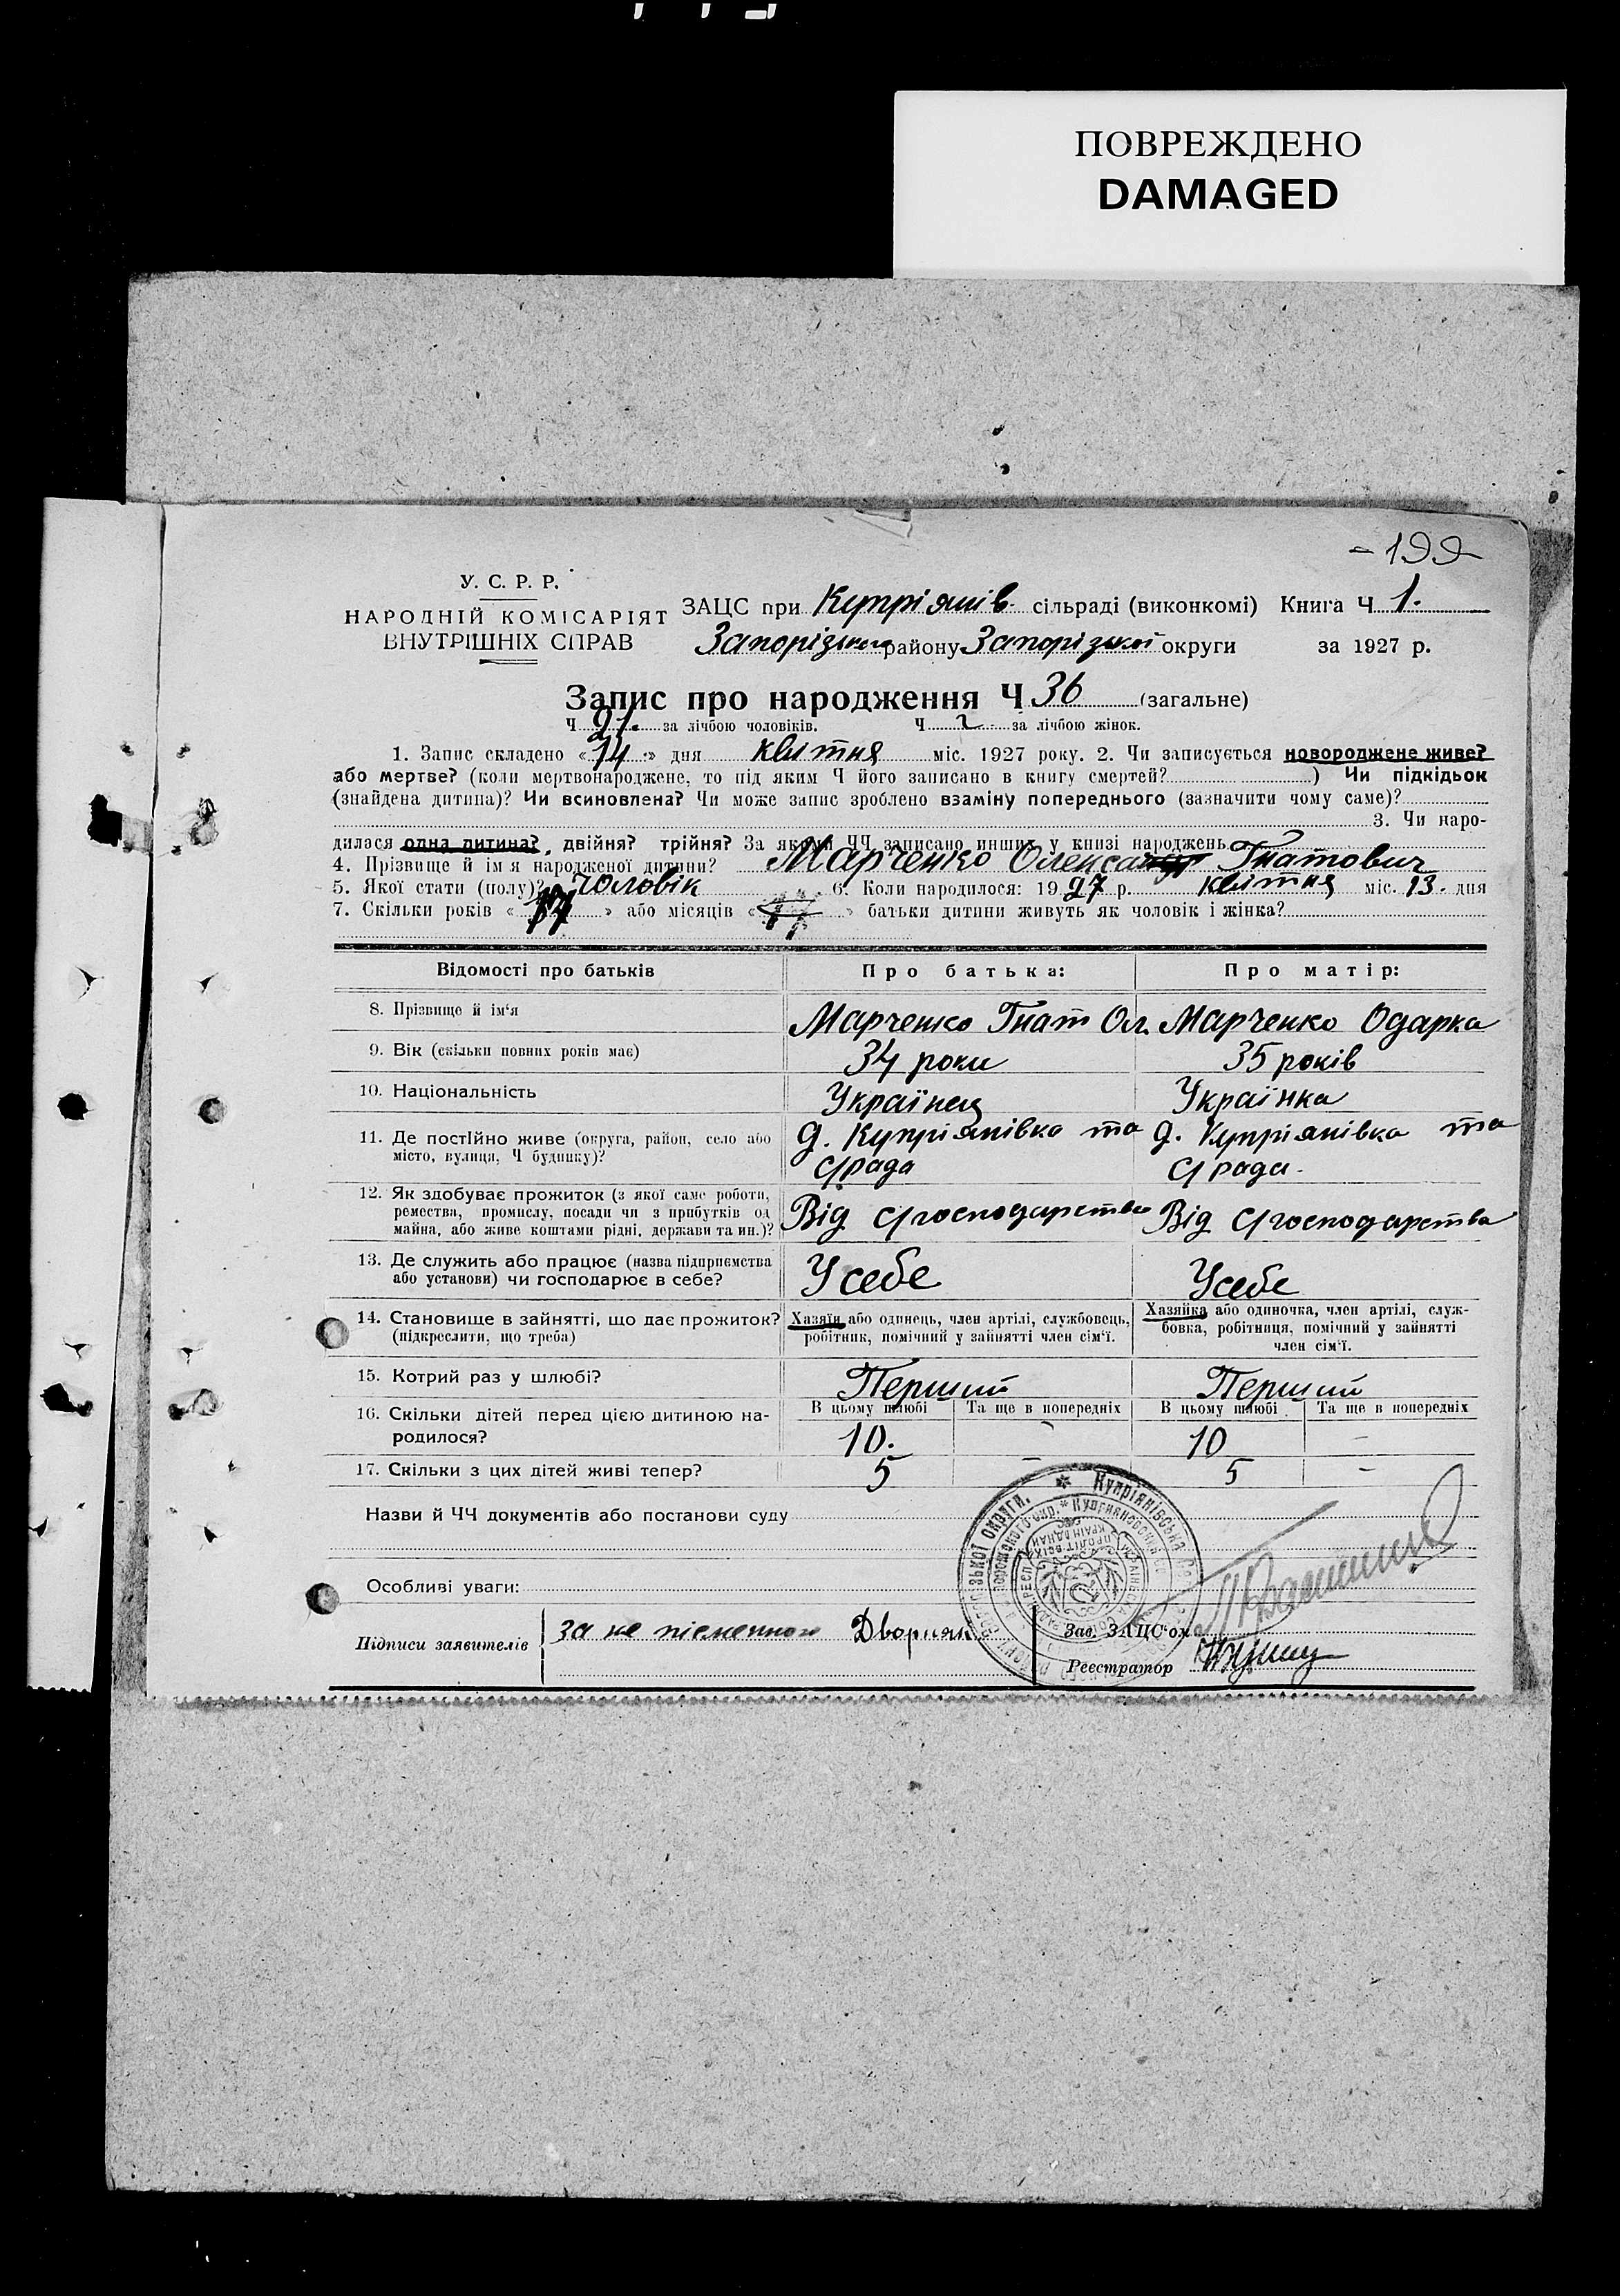 ПОВРЕЖДЕНО
DAMAGED
-199-
У. С. Р. Р.
НАРОДНІЙ КОМІСАРІЯТ
ВНУТРІШНІХ СПРАВ
ЗАЦС при Купріянів. сільраді (виконкомі) Книга Ч 1.
Запорізького району Запорізької округи за 1927 р.
Запис про народження Ч 36 (загальне)
Ч 21. за лічбою чоловіків. Ч за лічбою жінок.
1. Запис складено «14» дня квітня міс. 1927 року. 2. Чи записується новороджене живе?
або мертве? (коли мертвонароджене, то під яким Ч його записано в книгу смертей? ) Чи підкідьок
(знайдена дитина)? Чи всиновлена? Чи може запис зроблено взаміну попереднього (зазначити чому саме)?
3. Чи наро-
дилася одна дитина?, двійня? трійня? За яким ЧЧ записано инших у книзі народжень
4. Прізвище й ім'я народженої дитини? Марченко Олександр Гнатович
5. Якої стати (полу)? чоловік 6. Коли народилося: 1927 р. квітня міс. 13. дня
7. Скільки років «17» або місяців « » батьки дитини живуть як чоловік і жінка?
Відомості про батьків Про батька: Про матір:
8. Прізвище й ім'я Марченко Гнат Ол. Марченко Одарка
9. Вік (скільки повних років має) 34 роки 35 років
10. Національність Українец Українка
11. Де постійно живе (округа, район, село або місто, вулиця, Ч будинку)? д. Купріянівка та с/рада д. Купріянівка та с/рада.
12. Як здобуває прожиток (з якої саме роботи, ремества, промислу, посади чи з прибутків од майна, або живе коштами рідні, держави та ин.)? Від с/господарства Від с/господарства
13. Де служить або працює (назва підприємства або установи) чи господарює в себе? У себе У себе
14. Становище в зайнятті, що дає прожиток? (підкреслити, що треба) Хазяїн або одинець, член артілі, службовець, робітник, помічний у зайнятті член сім'ї. Хазяйка або одиночка, член артілі, служ-бовка, робітниця, помічний у зайнятті член сім'ї.
15. Котрий раз у шлюбі? Перший Перший
В цьому шлюбі Та ще в попередніх В цьому шлюбі Та ще в попередніх
16. Скільки дітей перед цією дитиною на-родилося? 10. - 10 -
17. Скільки з цих дітей живі тепер? 5 - 5 -
Назви й ЧЧ документів або постанови суду
Особливі уваги:
Підписи заявителів за не писменного Дворняк
Зав. ЗАЦС'ом
Реєстратор